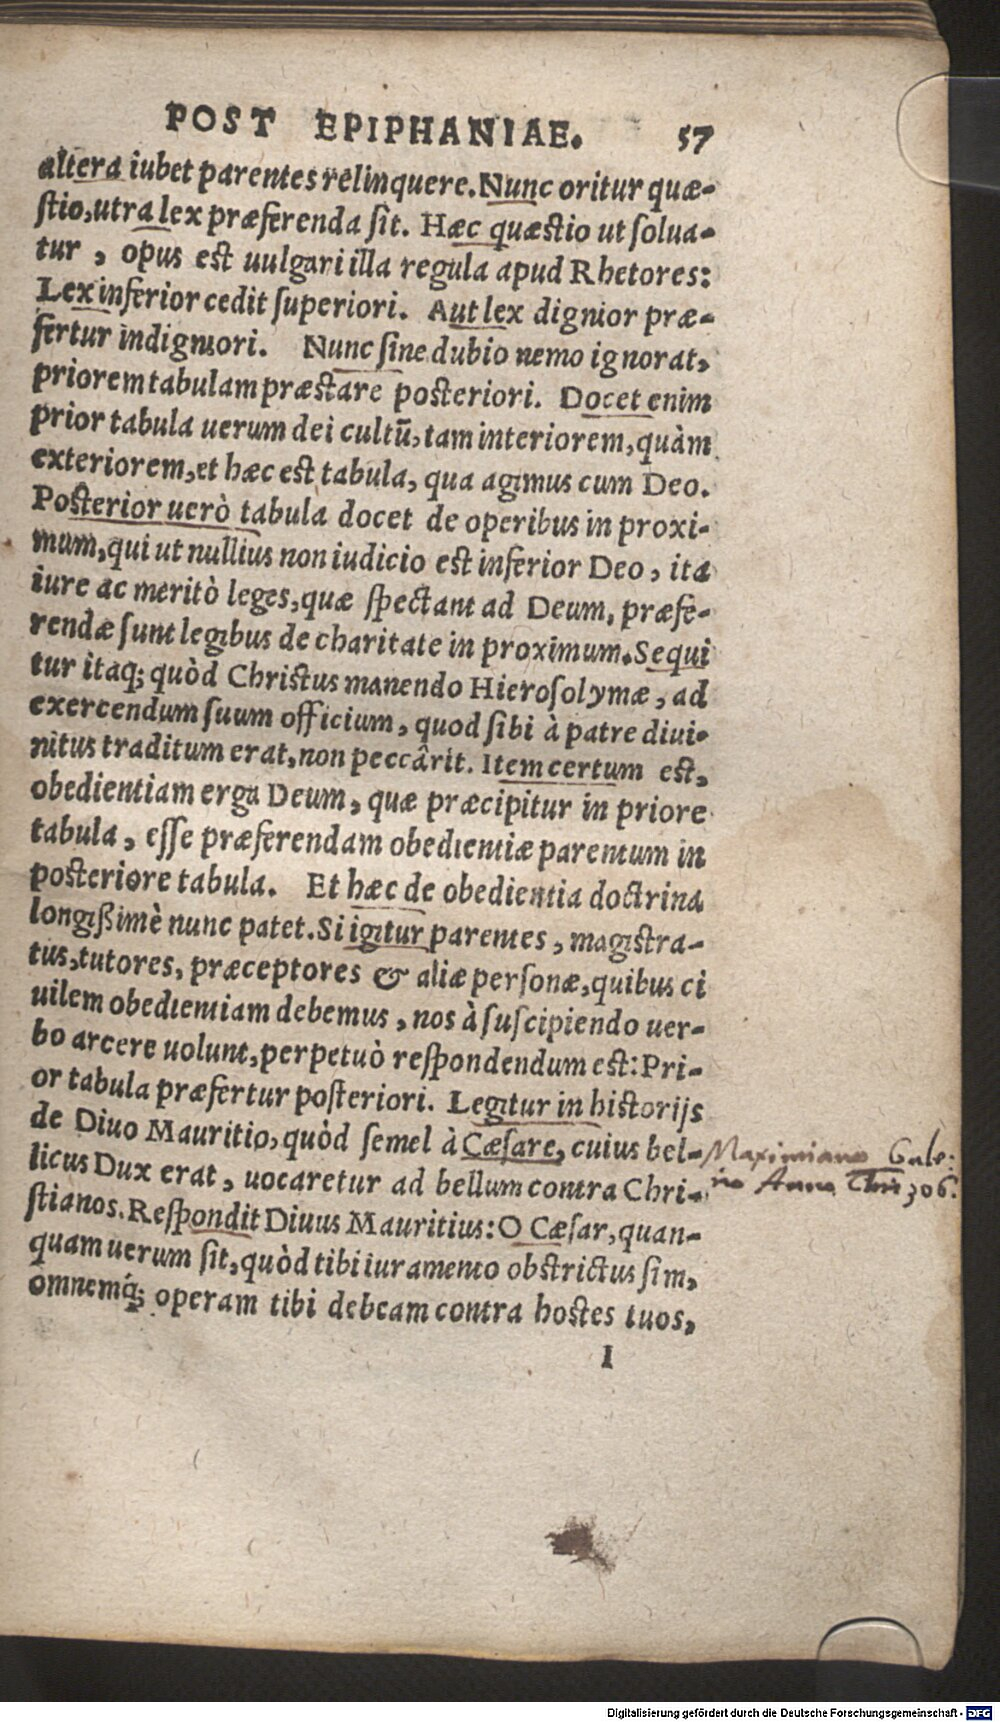 POST EPIPHANIAE. 57
altera iubet parentes relinquere. Nunc oritur quæ-
stio, utra lex præferenda sit. Hæc quæstio ut solua-
tur, opus est uulgari illa regula apud Rhetores:
Lex inferior cedit superiori. Aut lex dignior præ-
fertur indigniori. Nunc sine dubio nemo ignorat,
priorem tabulam præstare posteriori. Docet enim
prior tabula uerum dei cultū, tam interiorem, quàm
exteriorem, et hæc est tabula, qua agimus cum Deo.
Posterior uerò tabula docet de operibus in proxi-
mum, qui ut nullius non iudicio est inferior Deo, ita
iure ac meritò leges, quæ spectant ad Deum, præfe-
rendæ sunt legibus de charitate in proximum. Sequi
tur itaq; quòd Christus manendo Hierosolymæ, ad
exercendum suum officium, quod sibi à patre diui-
nitus traditum erat, non peccârit. Item certum est,
obedientiam erga Deum, quæ præcipitur in priore
tabula, esse præferendam obedientiæ parentum in
posteriore tabula. Et hæc de obedientia doctrina
longißimè nunc patet. Si igitur parentes, magistra-
tus, tutores, præceptores & aliæ personæ, quibus ci
uilem obedientiam debemus, nos à suscipiendo uer-
bo arcere uolunt, perpetuò respondendum est: Pri-
or tabula præfertur posteriori. Legitur in historijs
de Diuo Mauritio, quòd semel à Cæsare, cuius bel-
licus Dux erat, uocaretur ad bellum contra Chri-
stianos. Respondit Diuus Mauritius: O Cæsar, quan-
quam uerum sit, quòd tibi iuramento obstrictus sim,
omnemq́; operam tibi debeam contra hostes tuos,
I
Maximiano Gale:
rio Anno Chri 306.
Digitalisierung gefördert durch die Deutsche Forschungsgemeinschaft - DFG